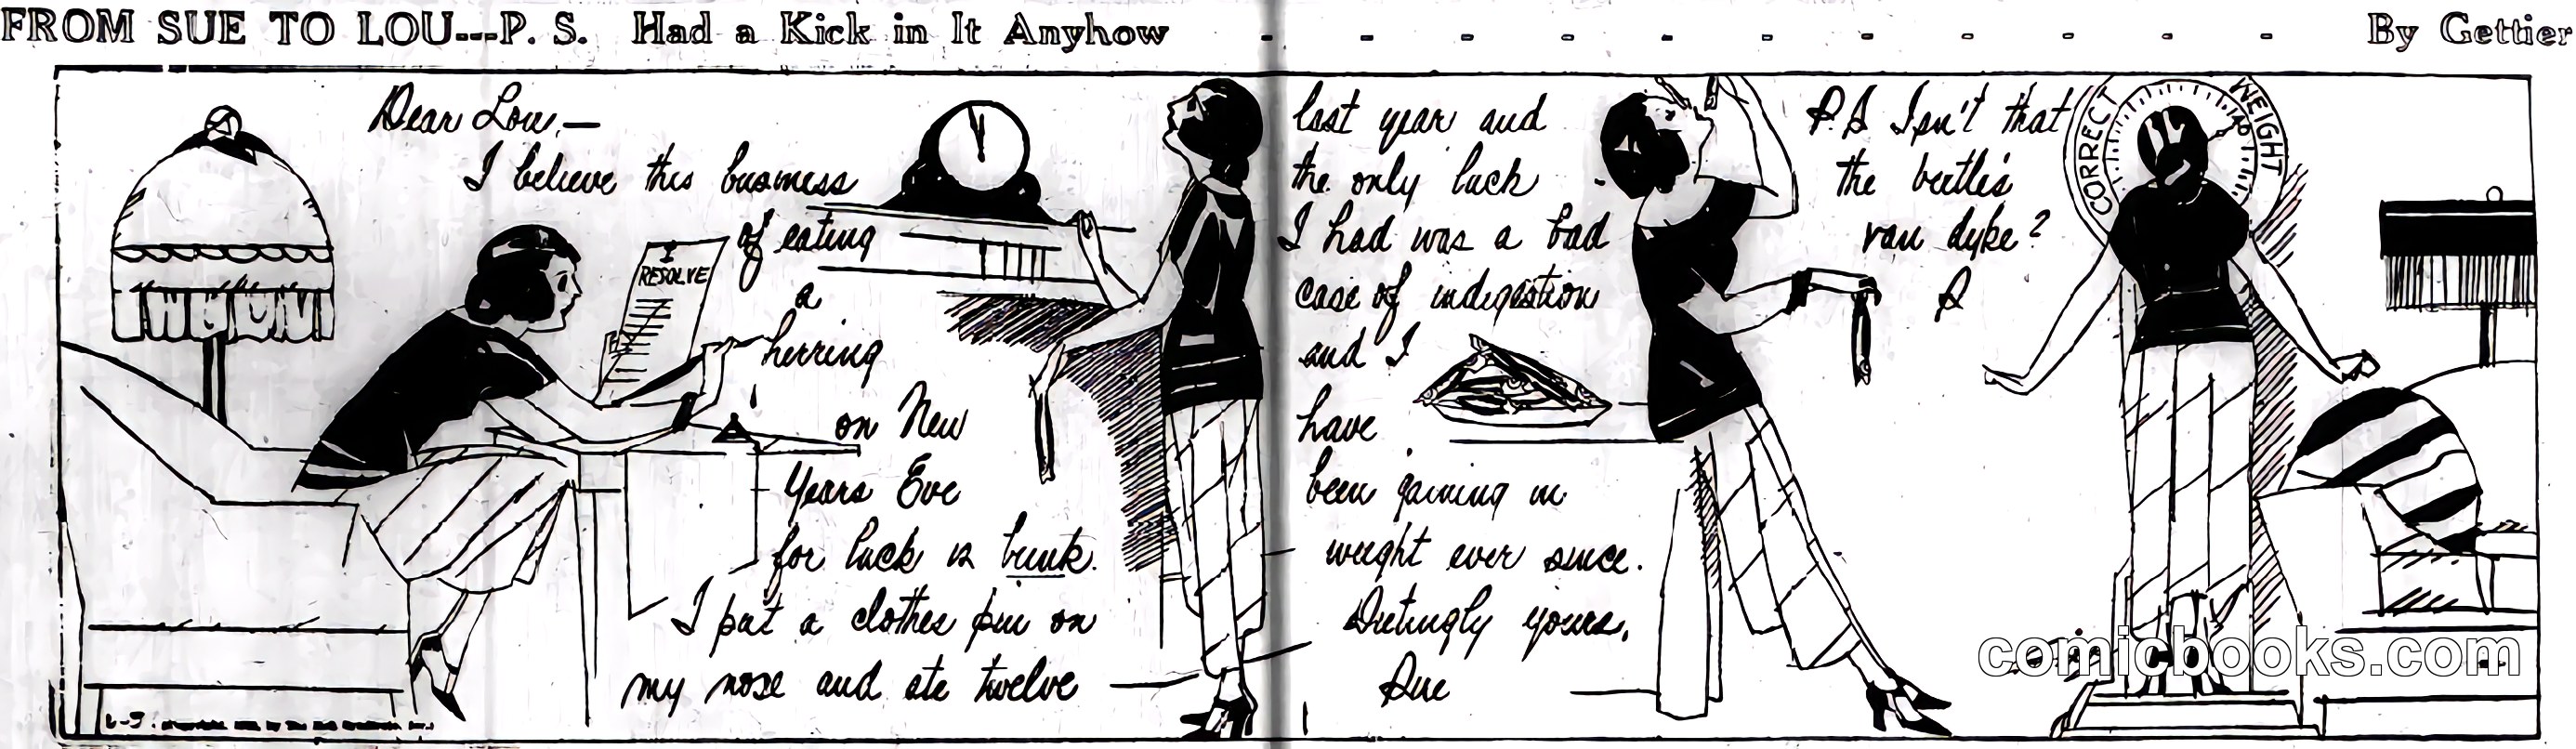 FROM SUE TO LOU---P. S. Had a Kick in It Anyhow - - - - - - - - - - - By Gettier
Dear Lou,—
I believe this business
of eating
a
herring
on New
Years Eve
for luck is bunk.
I put a clothes pin on
my nose and ate twelve
I
RESOLVE
last year and
the only luck
I had was a bad
case of indigestion
and I
have
been gaining in
weight ever since.
Dietingly yours,
Sue
P.S Isn't that
the beetle's
van dyke?
S
CORRECT WEIGHT
comicbooks.com